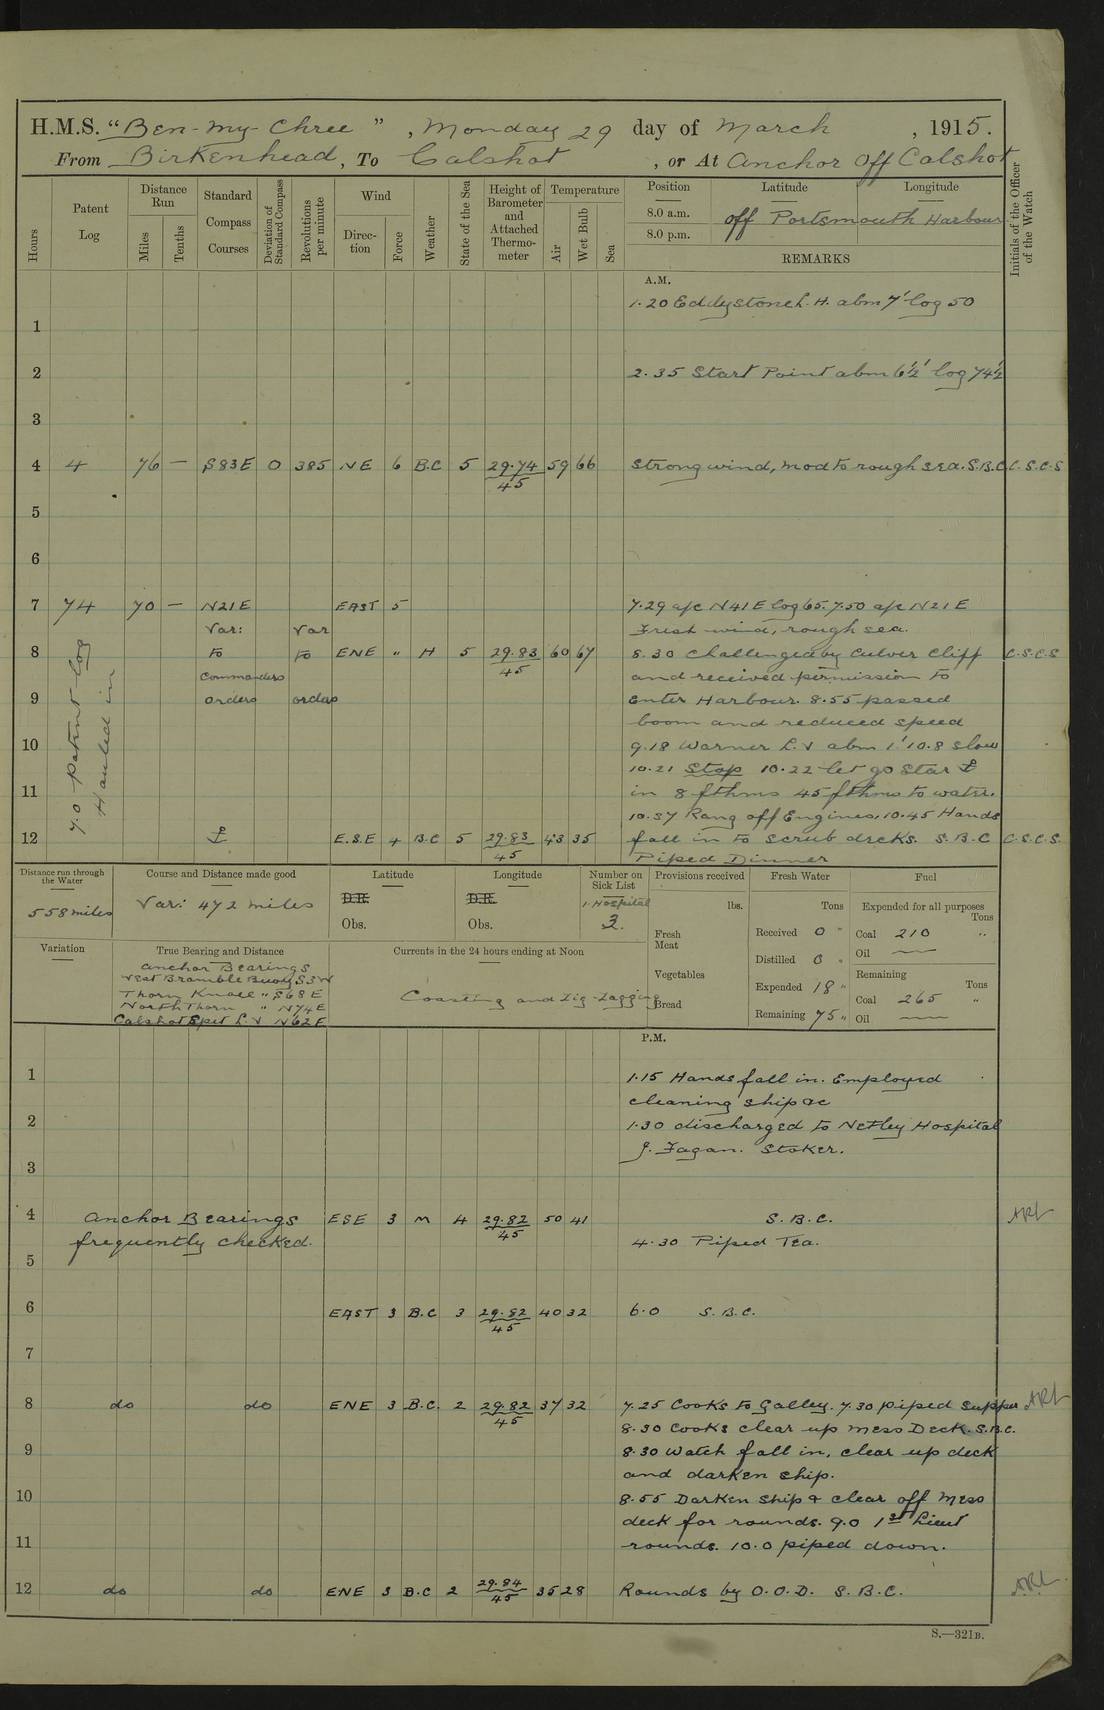 H.M.S. "Ben-my-Chree", Monday 29 day of March, 1915.
From Birkenhead, To Calshot, or At Anchor off Calshot
Hours
Patent Log
Distance Run
Miles
Tenths
Standard Compass Courses
Deviation of Standard Compass
Revolutions per minute
Wind
Direction
Force
Weather
State of the Sea
Height of Barometer and Attached Thermometer
Temperature
Air
Wet Bulb
Sea
Position
8.0 a.m.
8.0 p.m.
Latitude
Longitude
off Portsmouth Harbour
REMARKS
Initials of the Officer of the Watch
A.M.
1.20 Eddystone L.H. abm 7' log 50
1
2 2.35 Start Point abm 6½' log 74½
3
4 4 76 — S83E 0 385 NE 6 B.C 5 29.74/45 59 66 Strong wind, mod to rough sea. S.B.C. C.S.C.S
5
6
7 74 70 — N21E EAST 5 7.29 a/c N41E log 65. 7.50 a/c N21E
Var: Var Fresh wind, rough sea.
8 to to ENE " H 5 29.83/45 60 67 8.30 Challenged by Culver Cliff C.S.C.S
Commanders and received permission to
9 orders orders Enter Harbour. 8.55 passed
boom and reduced speed
7.0 Patent log Hauled in
10 9.18 Warner L.V abm 1' 10.8 slow
10.21 Stop 10.22 let go Star ⚓
11 in 8 fthms 45 fthms to water.
10.37 Rang off Engines. 10.45 Hands
12 ⚓ E.S.E 4 B.C 5 29.83/45 43 35 fall in to scrub decks. S.B.C C.S.C.S.
Piped Dinner
Distance run through the Water
558 miles
Course and Distance made good
Var: 472 miles
Latitude
D.R.
Obs.
Longitude
D.R.
Obs.
Number on Sick List
1. Hospital
3.
Provisions received
lbs.
Fresh Meat
Vegetables
Bread
Fresh Water
Tons
Received 0 "
Distilled 0 "
Expended 18 "
Remaining 75 "
Fuel
Expended for all purposes
Tons
Coal 210 "
Oil —
Remaining
Tons
Coal 265 "
Oil —
Variation
True Bearing and Distance
Anchor Bearings
West Bramble Buoy S3W
Thorn Knoll " S68E
North Thorn " N74E
Calshot Spit L.V N62E
Currents in the 24 hours ending at Noon
Coasting and Zig-Zagging
P.M.
1 1.15 Hands fall in. Employed
cleaning ship &c
2 1.30 discharged to Netley Hospital
J. Fagan. Stoker.
3
4 Anchor Bearings ESE 3 M 4 29.82/45 50 41 S.B.C. ARL
frequently checked. 4.30 Piped Tea.
5
6 EAST 3 B.C 3 29.82/45 40 32 6.0 S.B.C.
7
8 do do ENE 3 B.C. 2 29.82/45 37 32 7.25 Cooks to Galley. 7.30 piped supper ARL
8.30 Cooks clear up Mess Deck. S.B.C.
9 8.30 Watch fall in, clear up deck
and darken ship.
10 8.55 Darken ship & clear off mess
deck for rounds. 9.0 1st Lieut
11 rounds. 10.0 piped down.
12 do do ENE 3 B.C 2 29.84/45 35 28 Rounds by O.O.D. S.B.C. ARL
S.—321B.